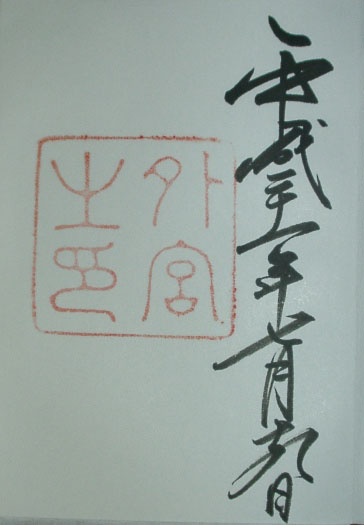 平成二十一年七月十九日
外宮
之印